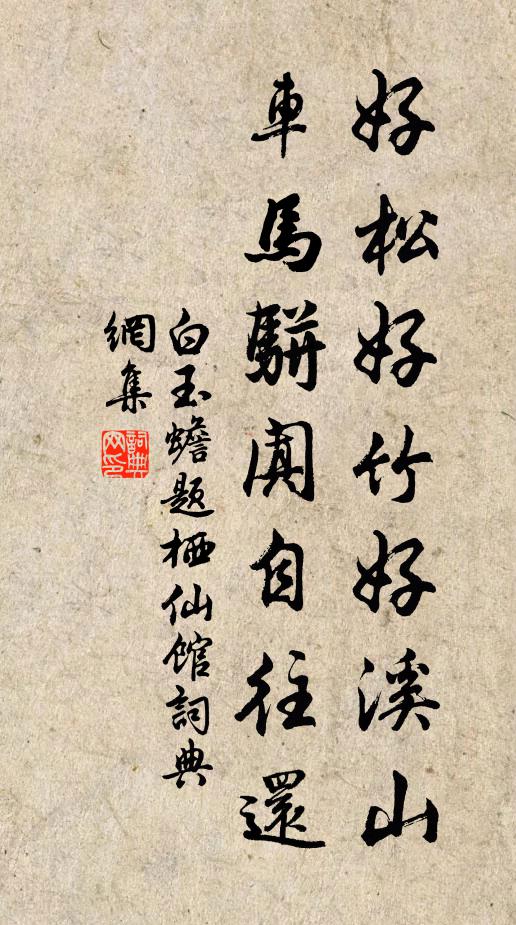 好松好竹好溪山
車馬駢闐自往還
白玉蟾題栖仙館詞典
網集
詞典
网印